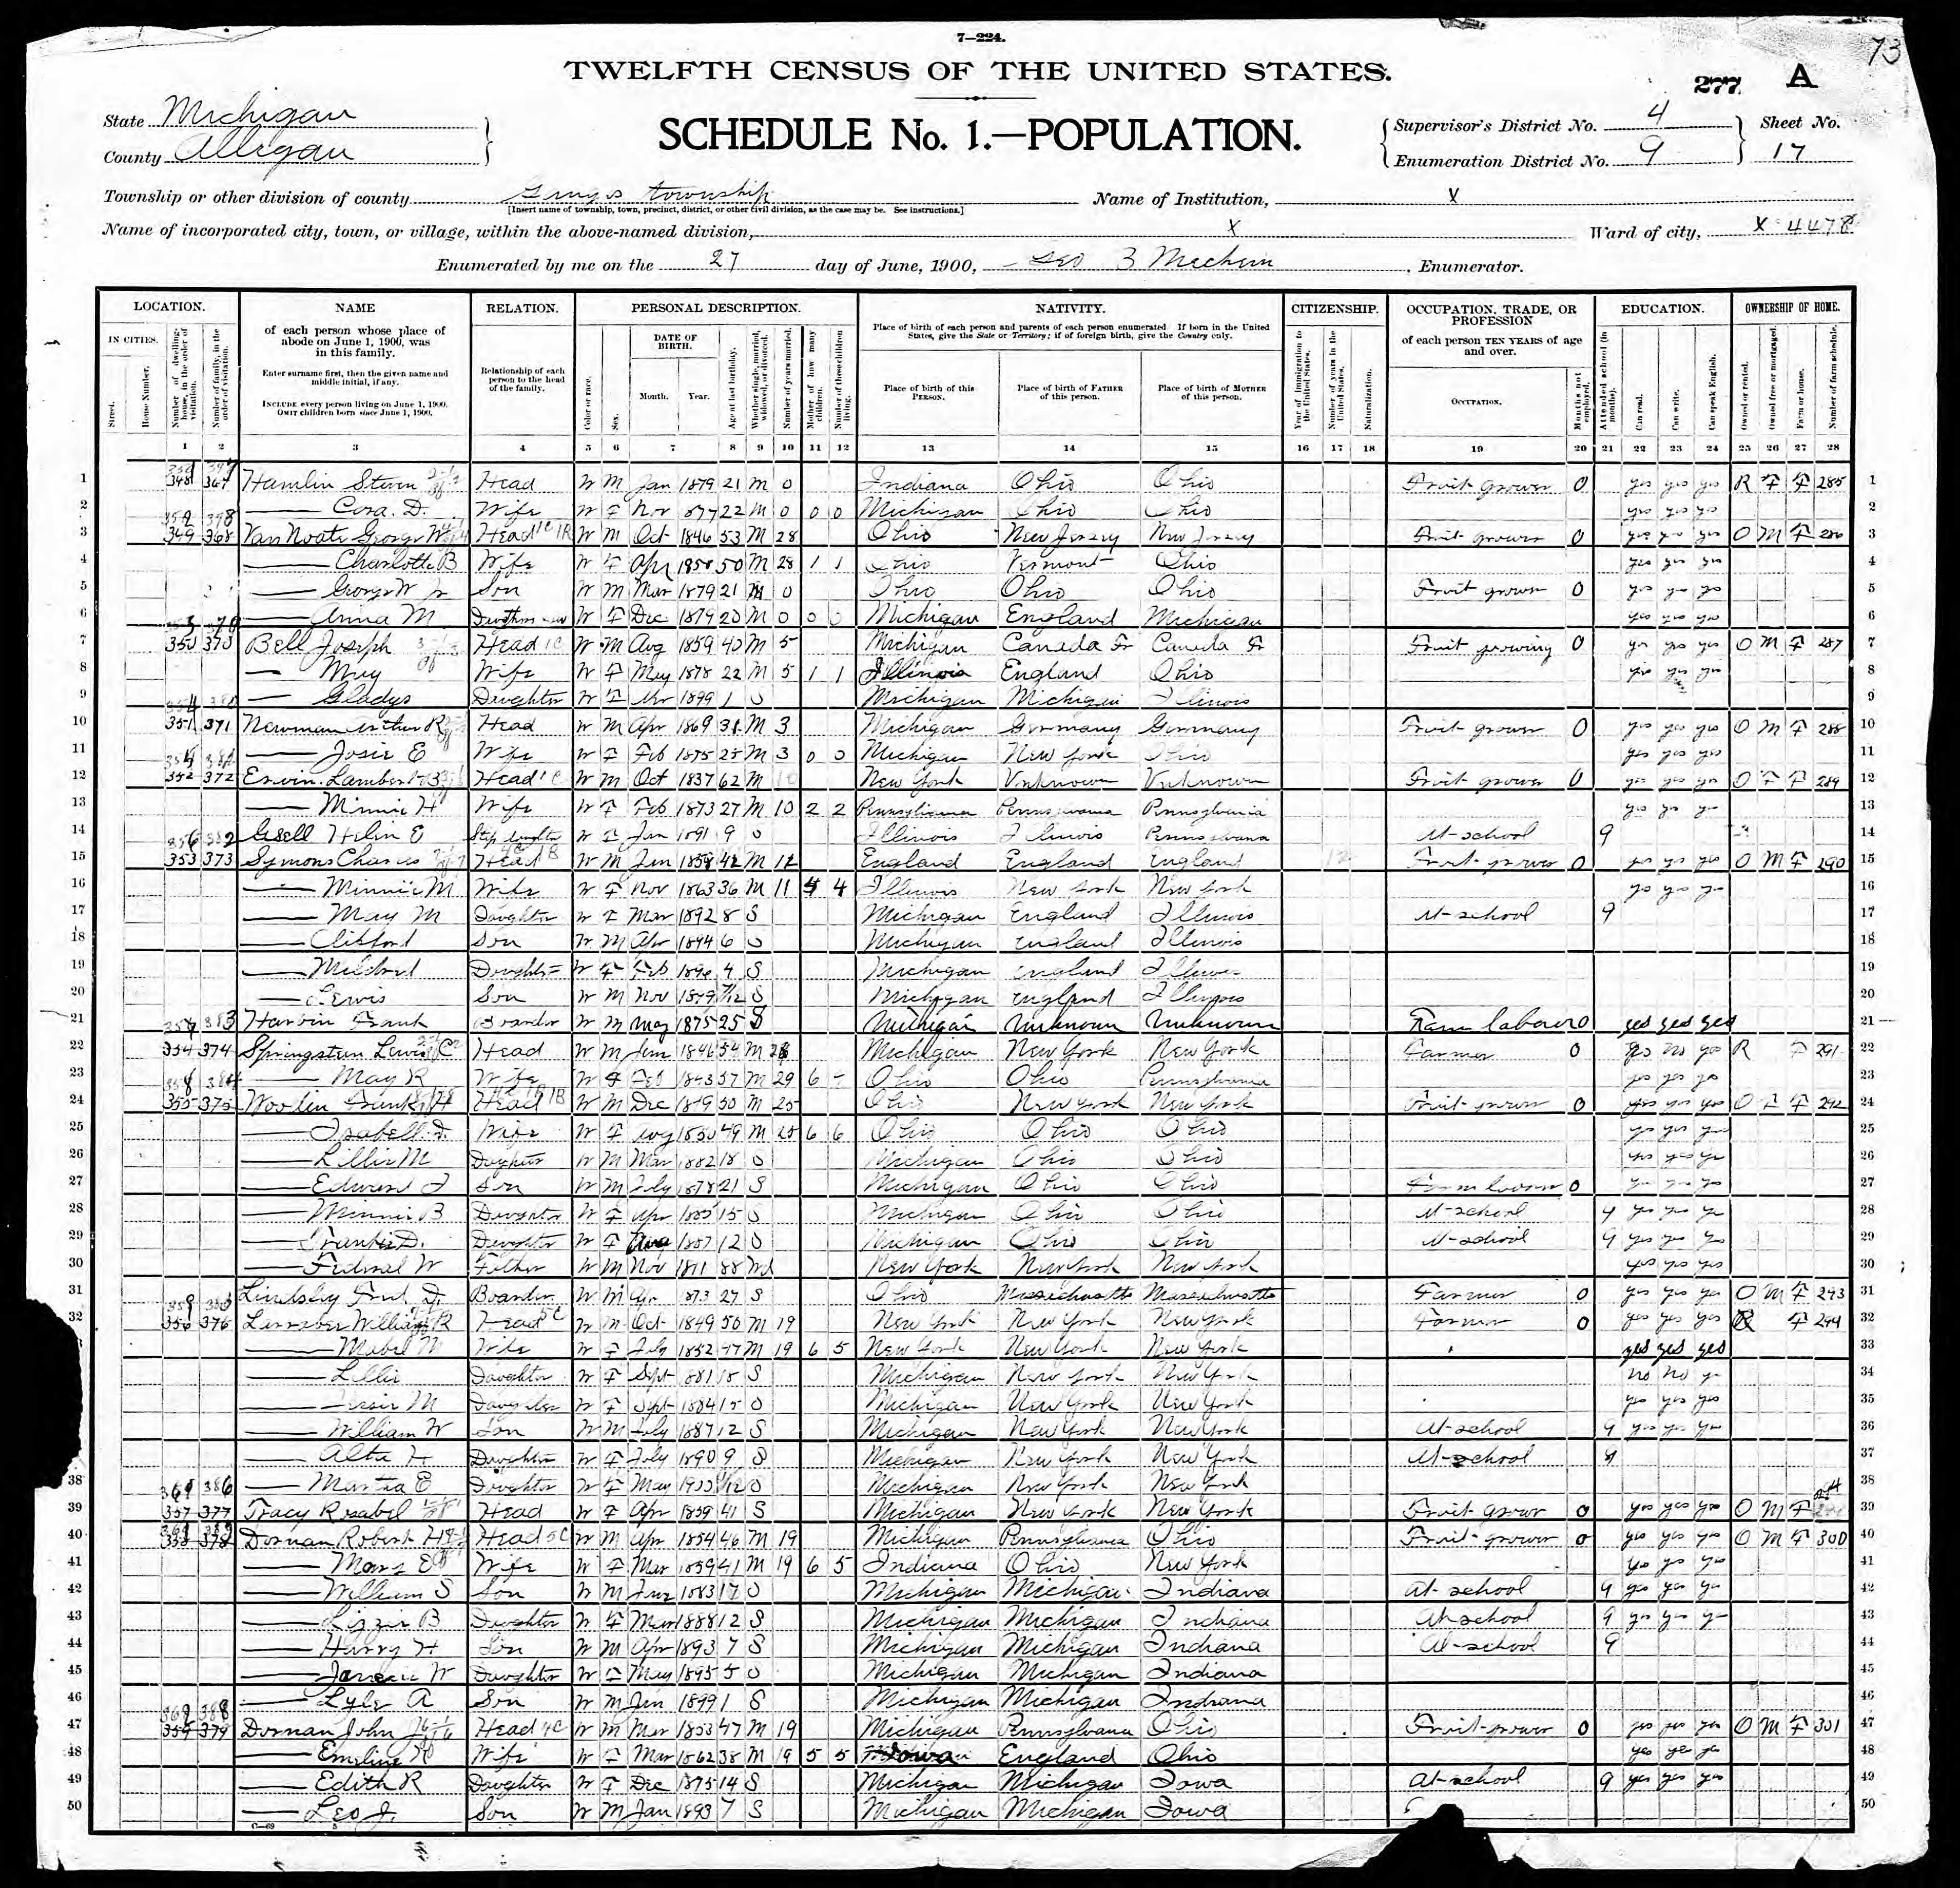 7—224.
73
TWELFTH CENSUS OF THE UNITED STATES.
277 A
State Michigan
County Allegan
SCHEDULE No. 1.—POPULATION.
Supervisor's District No. 4
Enumeration District No. 9
Sheet No. 17
Township or other division of county township
[Insert name of township, town, precinct, district, or other civil division, as the case may be. See instructions.]
Name of Institution, X
Name of incorporated city, town, or village, within the above-named division, X
Ward of city, X 4478
Enumerated by me on the 27 day of June, 1900, Geo B Mechem, Enumerator.
LOCATION. NAME RELATION. PERSONAL DESCRIPTION. NATIVITY. CITIZENSHIP. OCCUPATION, TRADE, OR PROFESSION EDUCATION. OWNERSHIP OF HOME.
IN CITIES. Street. House Number. Number of dwelling-house, in the order of visitation. Number of family, in the order of visitation.
of each person whose place of abode on June 1, 1900, was in this family.
Enter surname first, then the given name and middle initial, if any.
INCLUDE every person living on June 1, 1900. OMIT children born since June 1, 1900.
Relationship of each person to the head of the family.
Color or race. Sex. DATE OF BIRTH. Month. Year. Age at last birthday. Whether single, married, widowed, or divorced. Number of years married. Mother of how many children. Number of these children living.
Place of birth of each person and parents of each person enumerated. If born in the United States, give the State or Territory; if of foreign birth, give the Country only.
Place of birth of this PERSON. Place of birth of FATHER of this person. Place of birth of MOTHER of this person.
Year of immigration to the United States. Number of years in the United States. Naturalization.
of each person TEN YEARS of age and over. OCCUPATION. Months not employed.
Attended school (in months). Can read. Can write. Can speak English.
Owned or rented. Owned free or mortgaged. Farm or house. Number of farm schedule.
1 2 3 4 5 6 7 8 9 10 11 12 13 14 15 16 17 18 19 20 21 22 23 24 25 26 27 28
1 348 367 Hamlin Head W M Jan 1879 21 M 0 Indiana Ohio Ohio Fruit grower 0 yes yes yes R F F 285 1
2 — Cora. D. Wife W F Nov 1877 22 M 0 0 0 Michigan Ohio Ohio yes yes yes 2
3 349 368 Van George W Head W M Oct 1846 53 M 28 Ohio New Jersey New Jersey Fruit grower 0 yes yes yes O M F 286 3
4 — Charlotte B Wife W F Apr 50 M 28 1 1 Ohio Vermont Ohio yes yes yes 4
5 — George W Jr Son W M Mar 1879 21 M 0 Ohio Ohio Ohio Fruit grower 0 yes yes yes 5
6 — Anna M W F Dec 1879 20 M 0 0 0 Michigan England Michigan yes yes yes 6
7 350 Bell Joseph Head W M Aug 1859 40 M 5 Michigan Canada Fr Canada Fr Fruit growing 0 yes yes yes O M F 287 7
8 — May Wife W F May 1878 22 M 5 1 1 Illinois England Ohio yes yes yes 8
9 — Gladys Daughter W F 1899 1 S Michigan Michigan Illinois 9
10 351 371 Newman Arthur R Head W M Apr 1869 31 M 3 Michigan Germany Germany Fruit grower 0 yes yes yes O M F 288 10
11 — Josie E Wife W F Feb 1875 25 M 3 0 0 Michigan New York Ohio yes yes yes 11
12 352 372 Erwin Lambert B Head W M Oct 1837 62 M 10 New York Unknown Unknown Fruit grower 0 yes yes yes O F F 289 12
13 — Minnie H Wife W F Feb 1873 27 M 10 2 2 Pennsylvania Pennsylvania Pennsylvania yes yes yes 13
14 Helen E Step daughter W F Jan 1891 9 S Illinois Illinois Pennsylvania At-school 9 14
15 353 373 Symons Charles Head W M Jan 1858 42 M 12 England England England Fruit-grower 0 yes yes yes O M F 290 15
16 — Minnie M Wife W F Nov 1863 36 M 11 4 4 Illinois New York New York yes yes yes 16
17 — May M Daughter W F Mar 1892 8 S Michigan England Illinois At-school 9 17
18 — Clifford Son W M Apr 1894 6 S Michigan England Illinois 18
19 — Mildred Daughter W F Feb 1896 4 S Michigan England Illinois 19
20 — Lewis Son W M Nov 1899 7/12 S Michigan England Illinois 20
21 Harbin Frank Boarder W M May 1875 25 S Michigan Unknown Unknown Farm laborer 0 yes yes yes 21
22 354 374 Springsteen Lewis C Head W M Jun 1846 54 M Michigan New York New York Farmer 0 yes no yes R F 291 22
23 — May R Wife W F Feb 1843 57 M 29 6 Ohio Ohio Pennsylvania yes yes yes 23
24 355 375 Woodin Frank H Head W M Dec 1849 50 M 25 Ohio New York New York Fruit-grower 0 yes yes yes O F F 292 24
25 — Isabell. D. Wife W F Aug 1850 49 M 25 6 6 Ohio Ohio Ohio yes yes yes 25
26 — Lillie M Daughter W M Mar 1882 18 S Michigan Ohio Ohio yes yes yes 26
27 — Edward J Son W M July 1878 21 S Michigan Ohio Ohio Farm laborer 0 yes yes yes 27
28 — Minnie B Daughter W F Apr 1885 15 S Michigan Ohio Ohio At-school 9 yes yes yes 28
29 — D. Daughter W F Aug 1887 12 S Michigan Ohio Ohio At-school 9 yes yes yes 29
30 — Federal W Father W M Nov 1811 88 Wd New York New York New York yes yes yes 30
31 Lindsley Fred D. Boarder W M Apr 1873 27 S Ohio Massachusetts Massachusetts Farmer 0 yes yes yes O M F 293 31
32 356 376 Larraber William R Head W M Oct 1849 50 M 19 New York New York New York Farmer 0 yes yes yes R F 294 32
33 — Mabel M Wife W F July 1852 47 M 19 6 5 New York New York New York yes yes yes 33
34 — Lillie Daughter W F Sept 1881 18 S Michigan New York New York no no yes 34
35 — M Daughter W F Sept 1884 15 S Michigan New York New York yes yes yes 35
36 — William W Son W M July 1887 12 S Michigan New York New York At-school 9 yes yes yes 36
37 — Alta H Daughter W F July 1890 9 S Michigan New York New York At-school 9 37
38 — Martha E Daughter W F May 1900 1/12 S Michigan New York New York 38
39 357 377 Tracy Rosabel Head W F Apr 1859 41 S Michigan New York New York Fruit grower 0 yes yes yes O M F 39
40 358 378 Dornan Robert H Head W M Apr 1854 46 M 19 Michigan Pennsylvania Ohio Fruit-grower 0 yes yes yes O M F 300 40
41 — Mary E Wife W F Mar 1859 41 M 19 6 5 Indiana Ohio New York yes yes yes 41
42 — William S Son W M Jan 1883 17 S Michigan Michigan Indiana At-school 9 yes yes yes 42
43 — Lizzie B Daughter W F Mar 1888 12 S Michigan Michigan Indiana At-school 9 yes yes yes 43
44 — Harry H Son W M Apr 1893 7 S Michigan Michigan Indiana At-school 9 44
45 — W Daughter W F May 1895 5 S Michigan Michigan Indiana 45
46 — Lyle A Son W M Jun 1899 1 S Michigan Michigan Indiana 46
47 359 379 Dornan John Head W M Mar 1853 47 M 19 Michigan Pennsylvania Ohio Fruit-grower 0 yes yes yes O M F 301 47
48 — Emeline Wife W F Mar 1862 38 M 19 5 5 Iowa England Ohio yes yes yes 48
49 — Edith R Daughter W F Dec 14 S Michigan Michigan Iowa At-school 9 yes yes yes 49
50 — Leo J. Son W M Jan 1893 7 S Michigan Michigan Iowa 50
C—69